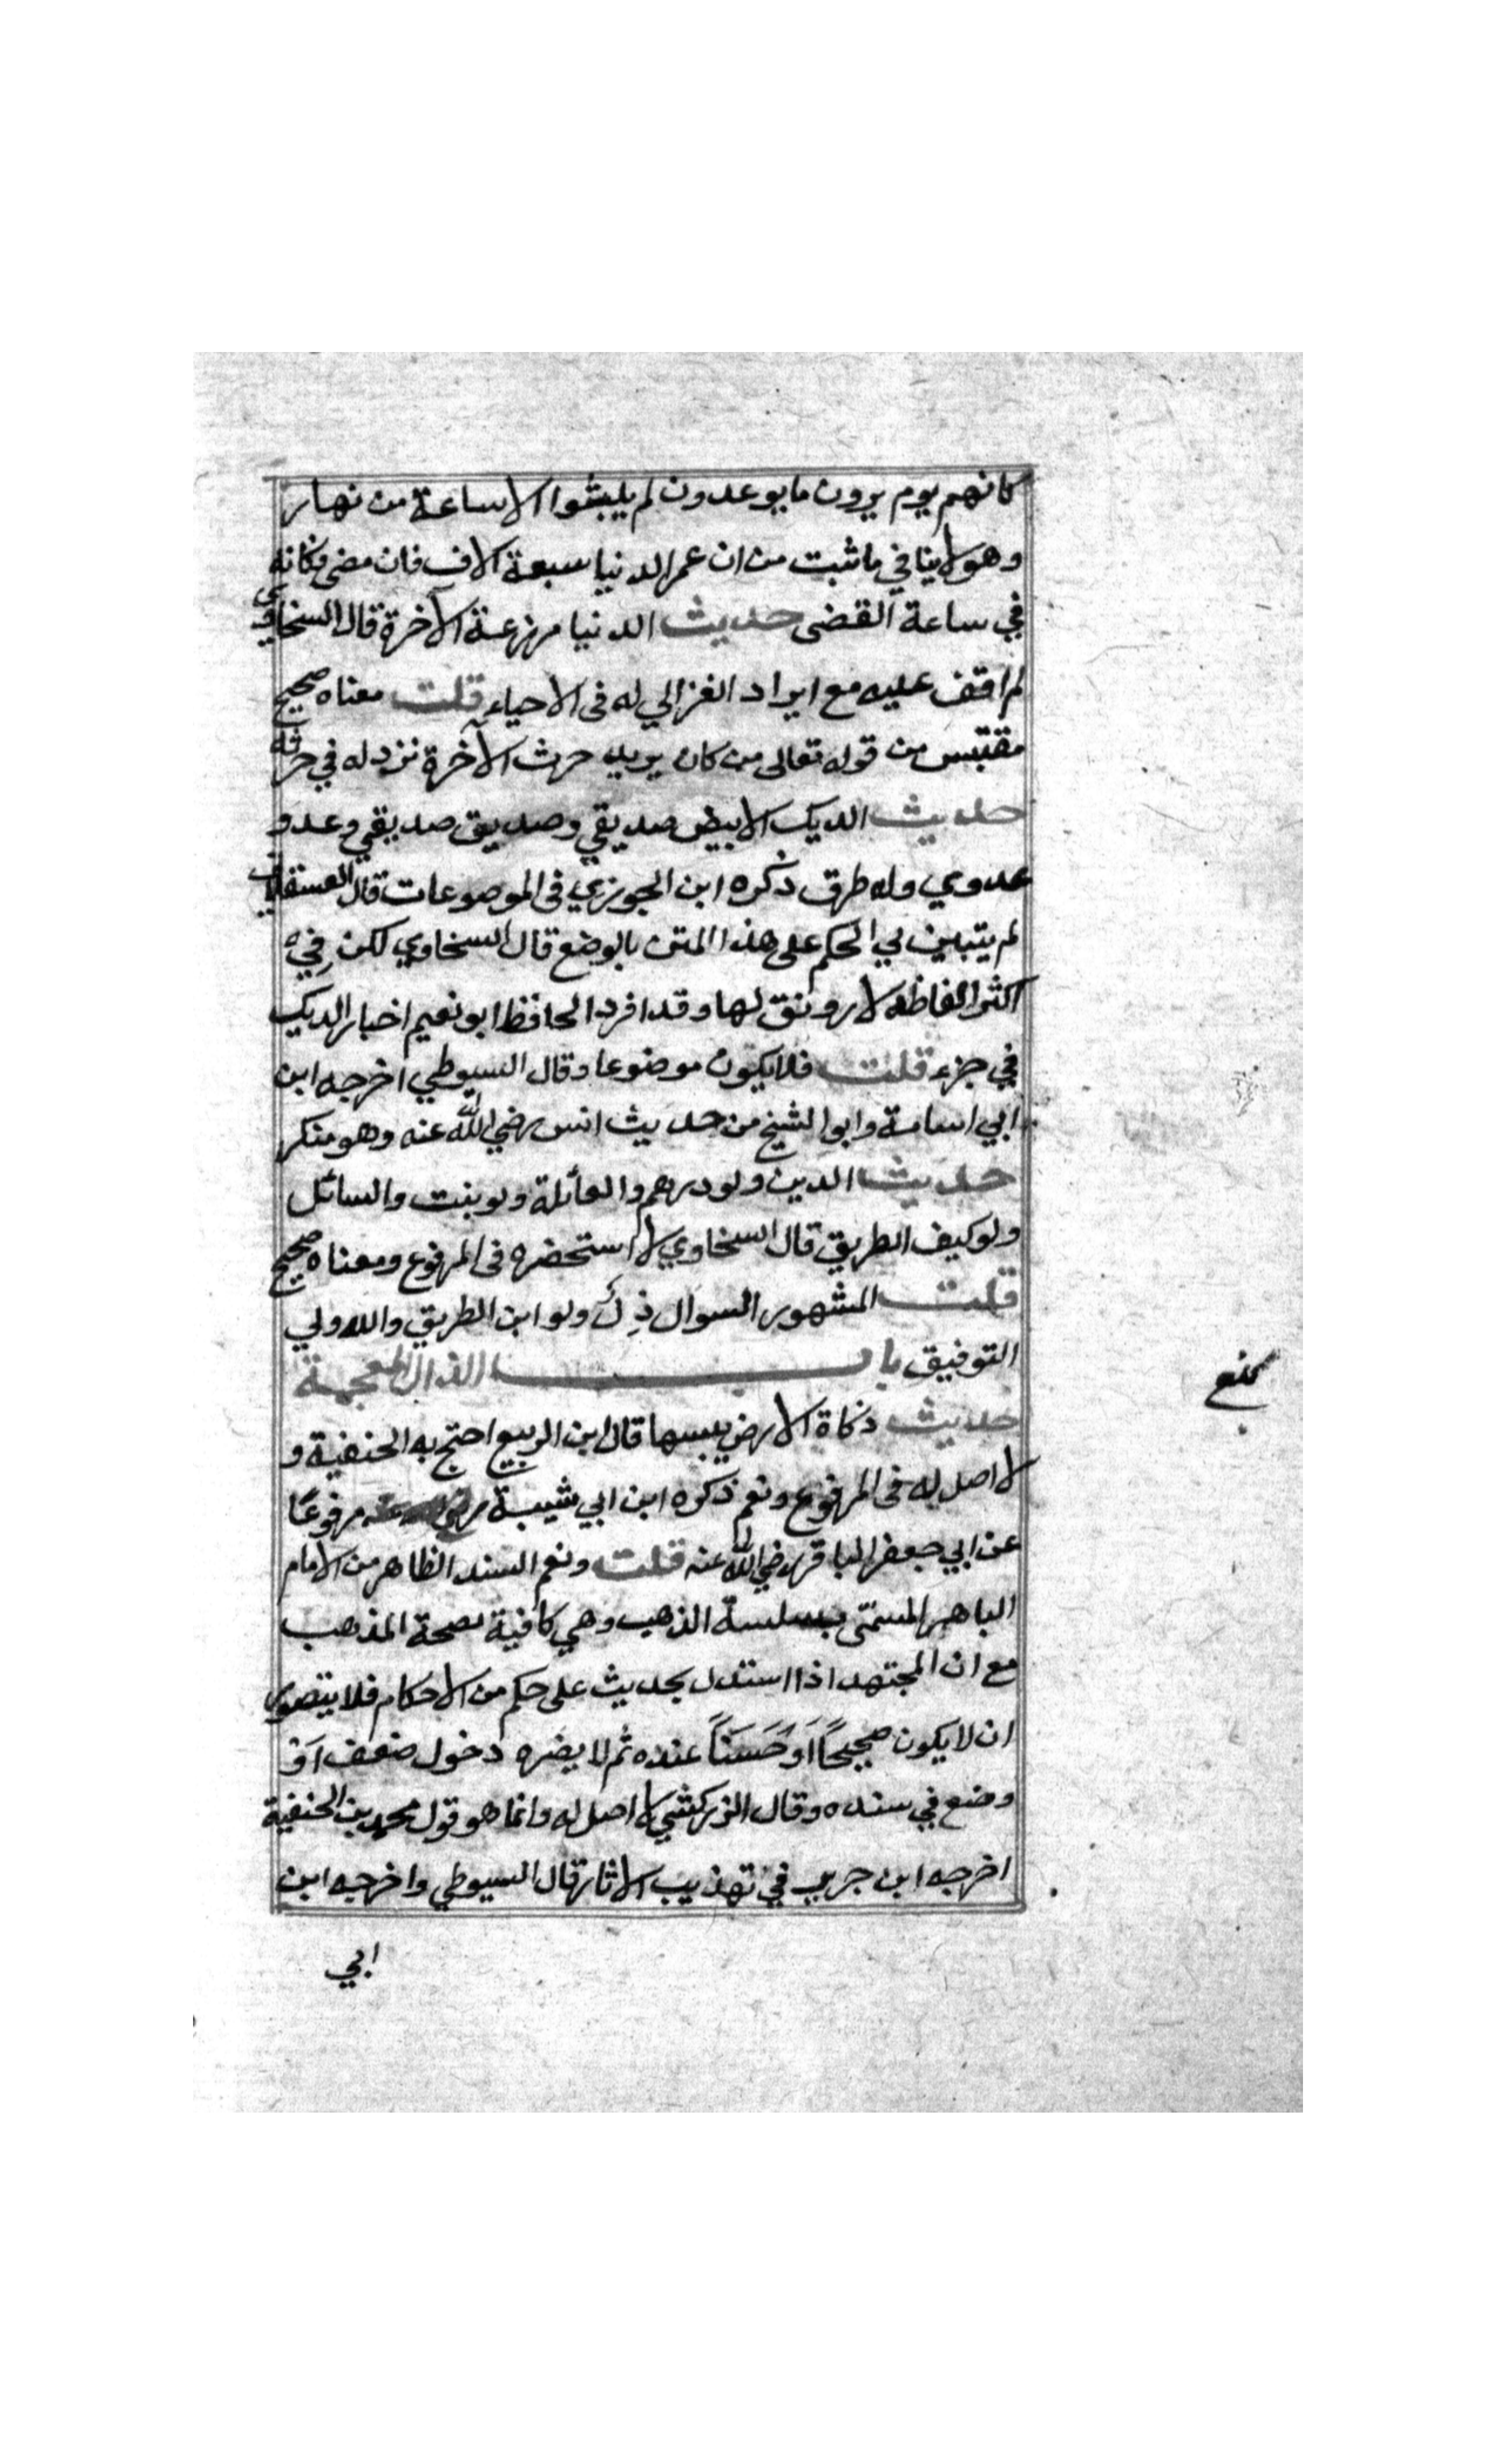 كانهم يوم يرون ما يوعدون لم يلبثوا الا ساعة من نهار
وهو لا ينافي ما ثبت من ان عمر الدنيا سبعة الاف فان مضى فكانه
في ساعة انقضى حديث الدنيا مزرعة الآخرة قال السخاوي
لم اقف عليه مع ايراد الغزالي له فى الاحياء قلت معناه صحيح
مقتبس من قوله تعالى من كان يريد حرث الآخرة نزد له في حرثه
حديث الديك الابيض صديقي وصديق صديقي وعدو
عدوي وله طرق ذكره ابن الجوزي فى الموضوعات قال العسقلاني
لم يتبين لي الحكم على هذا المتن بالوضع قال السخاوي لكن في
اكثر الفاظه لا رونق لها وقد افرد الحافظ ابو نعيم اخبار الديك
في جزء قلت فلا يكون موضوعا وقال السيوطي اخرجه ابن
ابي اسامة وابو الشيخ من حديث انس رضي الله عنه وهو منكر
حديث الدين ولو درهم والعائلة ولو بنت والسائل
ولو كيف الطريق قال السخاوي لا استحضره فى المرفوع ومعناه صحيح
قلت المشهور السوال ذل ولو ابن الطريق والله ولي
التوفيق باب الذال المعجمة
حديث ذكاة الارض يبسها قال ابن الربيع احتج به الحنفية و
لا اصل له فى المرفوع ونعم ذكره ابن ابي شيبة مرفوعًا
عن ابي جعفر الباقر رضي الله عنه قلت ونعم السند الظاهر من الامام
الباهر المسمّى بسلسة الذهب وهي كافية لصحة المذهب
مع ان المجتهد اذا استدل بحديث على حكم من الاحكام فلا يتصور
ان لا يكون صحيحًا اَو حَسَنًا عنده ثم لا يضره دخول ضعف اَو
وضع في سنده وقال الزركشي لا اصل له وانما هو قول محمد بن الحنفية
اخرجه ابن جرير في تهذيب الاثار قال السيوطي واخرجه ابن
ابي